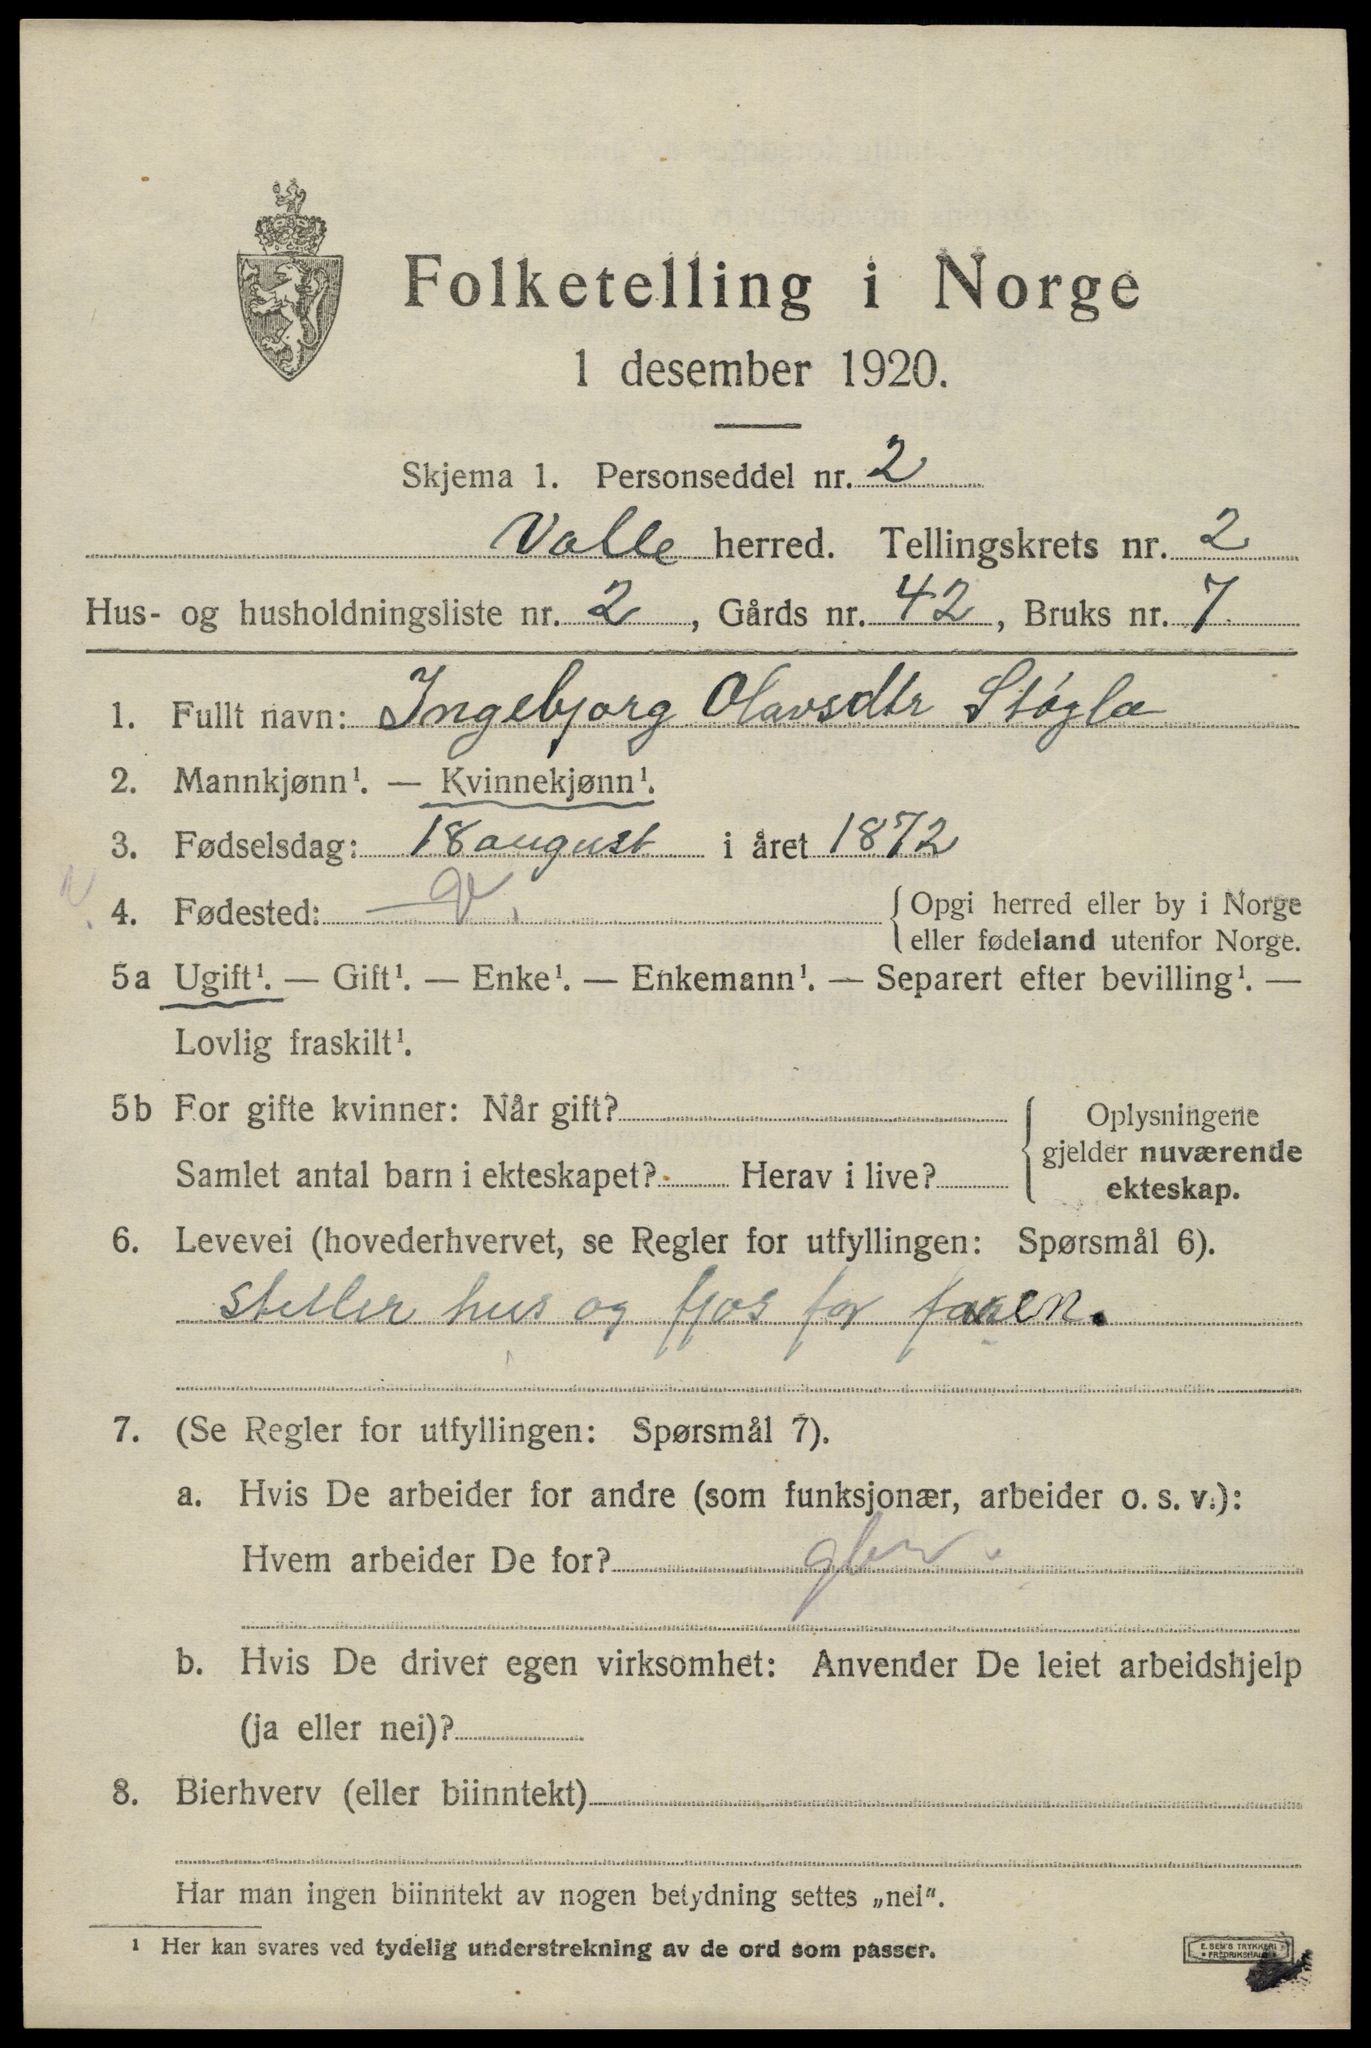 Folketelling i Norge
1 desember 1920.
Skjema 1. Personseddel nr. 2
Valle herred. Tellingskrets nr. 2
Hus- og husholdningsliste nr. 2, Gårds nr. 42, Bruks nr. 7
1. Fullt navn: Ingebjorg Olavsdtr Støgla
2. Mannkjønn¹. — Kvinnekjønn¹.
3. Fødselsdag: 18 august i året 1872
4. Fødested: — V. Opgi herred eller by i Norge
eller fødeland utenfor Norge.
5a Ugift¹. — Gift¹. — Enke¹. — Enkemann¹. — Separert efter bevilling¹. —
Lovlig fraskilt¹.
5b For gifte kvinner: Når gift? Oplysningene
gjelder nuværende
Samlet antal barn i ekteskapet? Herav i live? ekteskap.
6. Levevei (hovederhvervet, se Regler for utfyllingen: Spørsmål 6).
steller hus og fjos for faren.
7. (Se Regler for utfyllingen: Spørsmål 7).
a. Hvis De arbeider for andre (som funksjonær, arbeider o. s. v.):
Hvem arbeider De for?
b. Hvis De driver egen virksomhet: Anvender De leiet arbeidshjelp
(ja eller nei)?
8. Bierhverv (eller biinntekt)
Har man ingen biinntekt av nogen betydning settes „nei".
¹ Her kan svares ved tydelig understrekning av de ord som passer.
E. SEM'S TRYKKERI